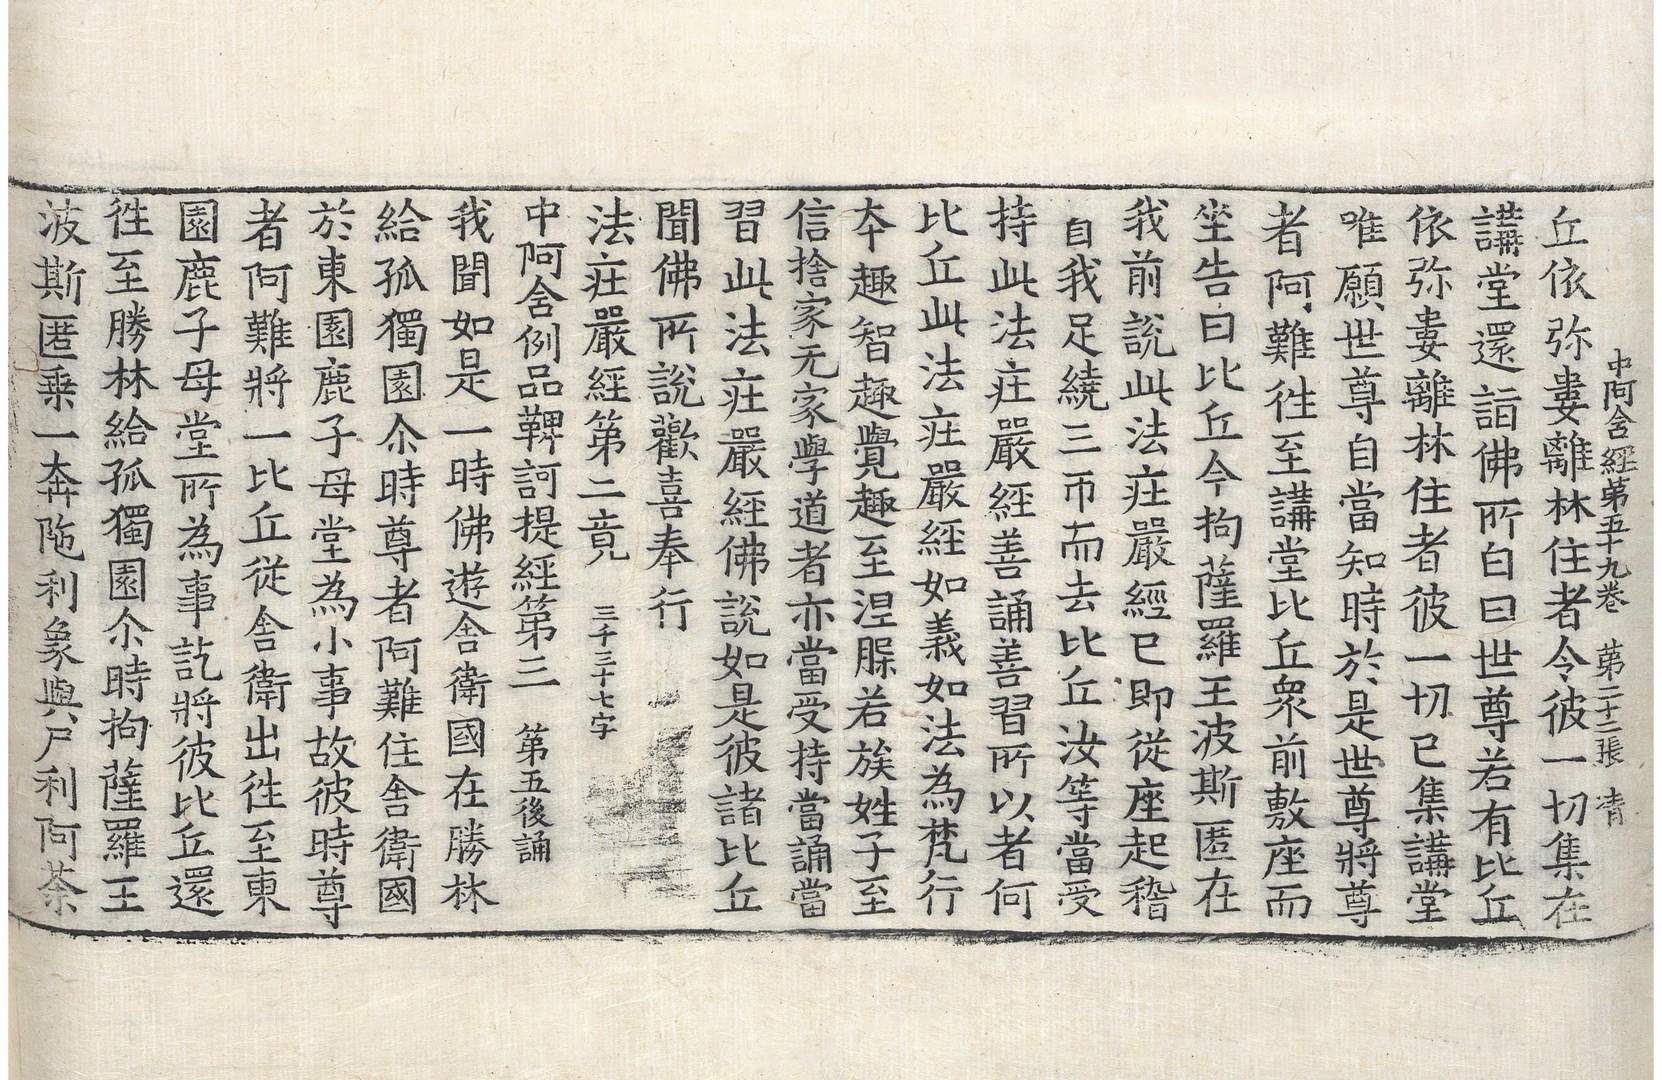 中阿含經第五十九卷　第二十二張　清
丘依弥婁離林住者令彼一切集在
講堂還詣佛所白曰世尊若有比丘
依弥婁離林住者彼一切已集講堂
唯願世尊自當知時於是世尊將尊
者阿難徃至講堂比丘衆前敷座而
坐告曰比丘今拘薩羅王波斯匿在
我前說此法庄嚴經已即從座起稽
自我足繞三帀而去比丘汝等當受
持此法庄嚴經善誦善習所以者何
比丘此法庄嚴經如義如法為梵行
夲趣智趣覺趣至涅槃若族姓子至
信捨家无家學道者亦當受持當誦當
習此法庄嚴經佛說如是彼諸比丘
聞佛所說歡喜奉行
法庄嚴經第二竟　三千三十七字
中阿含例品鞞訶提經第三　第五後誦
我聞如是一時佛遊舍衛國在勝林
給孤獨園尒時尊者阿難住舍衛國
於東園鹿子母堂為小事故彼時尊
者阿難將一比丘從舍衛出徃至東
園鹿子母堂所為事訖將彼比丘還
徃至勝林給孤獨園尒時拘薩羅王
波斯匿乗一奔陁利象與尸利阿荼